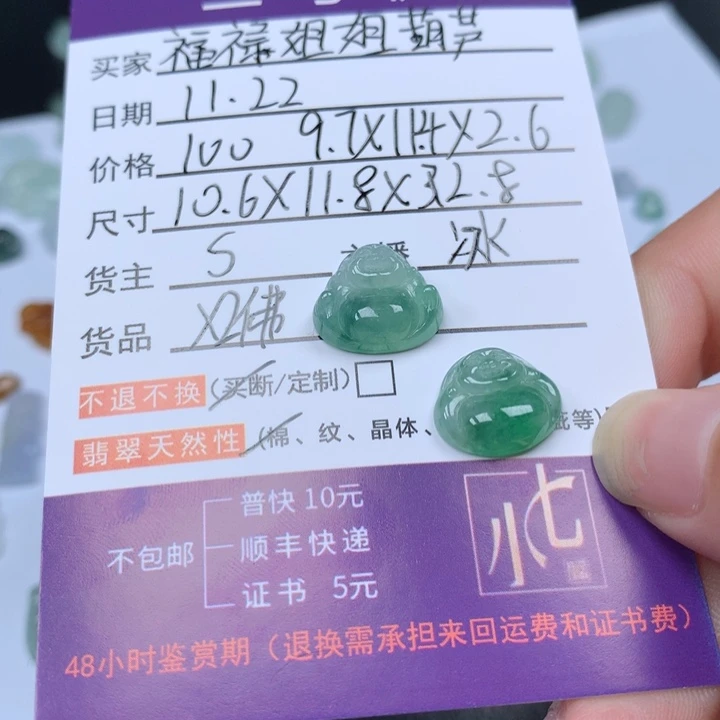 买家 福禄姐姐葫芦
日期 11.22
价格 100 9.7X11.4X2.6
尺寸 10.6X11.8X32.8
货主 S 主播 冰
货品 X2佛
不退不换(买断/定制)
翡翠天然性(棉、纹、晶体、
等)
不包邮
普快 10元
顺丰快递
证书 5元
小七
48小时鉴赏期（退换需承担来回运费和证书费）